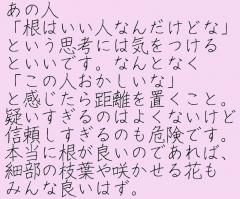 あの人
「根はいい人なんだけどな」
という思考には気をつける
といいです。なんとなく
「この人おかしいな」
と感じたら距離を置くこと。
疑いすぎるのはよくないけど
信頼しすぎるのも危険です。
本当に根が良いのであれば、
細部の枝葉や咲かせる花も
みんな良いはず。